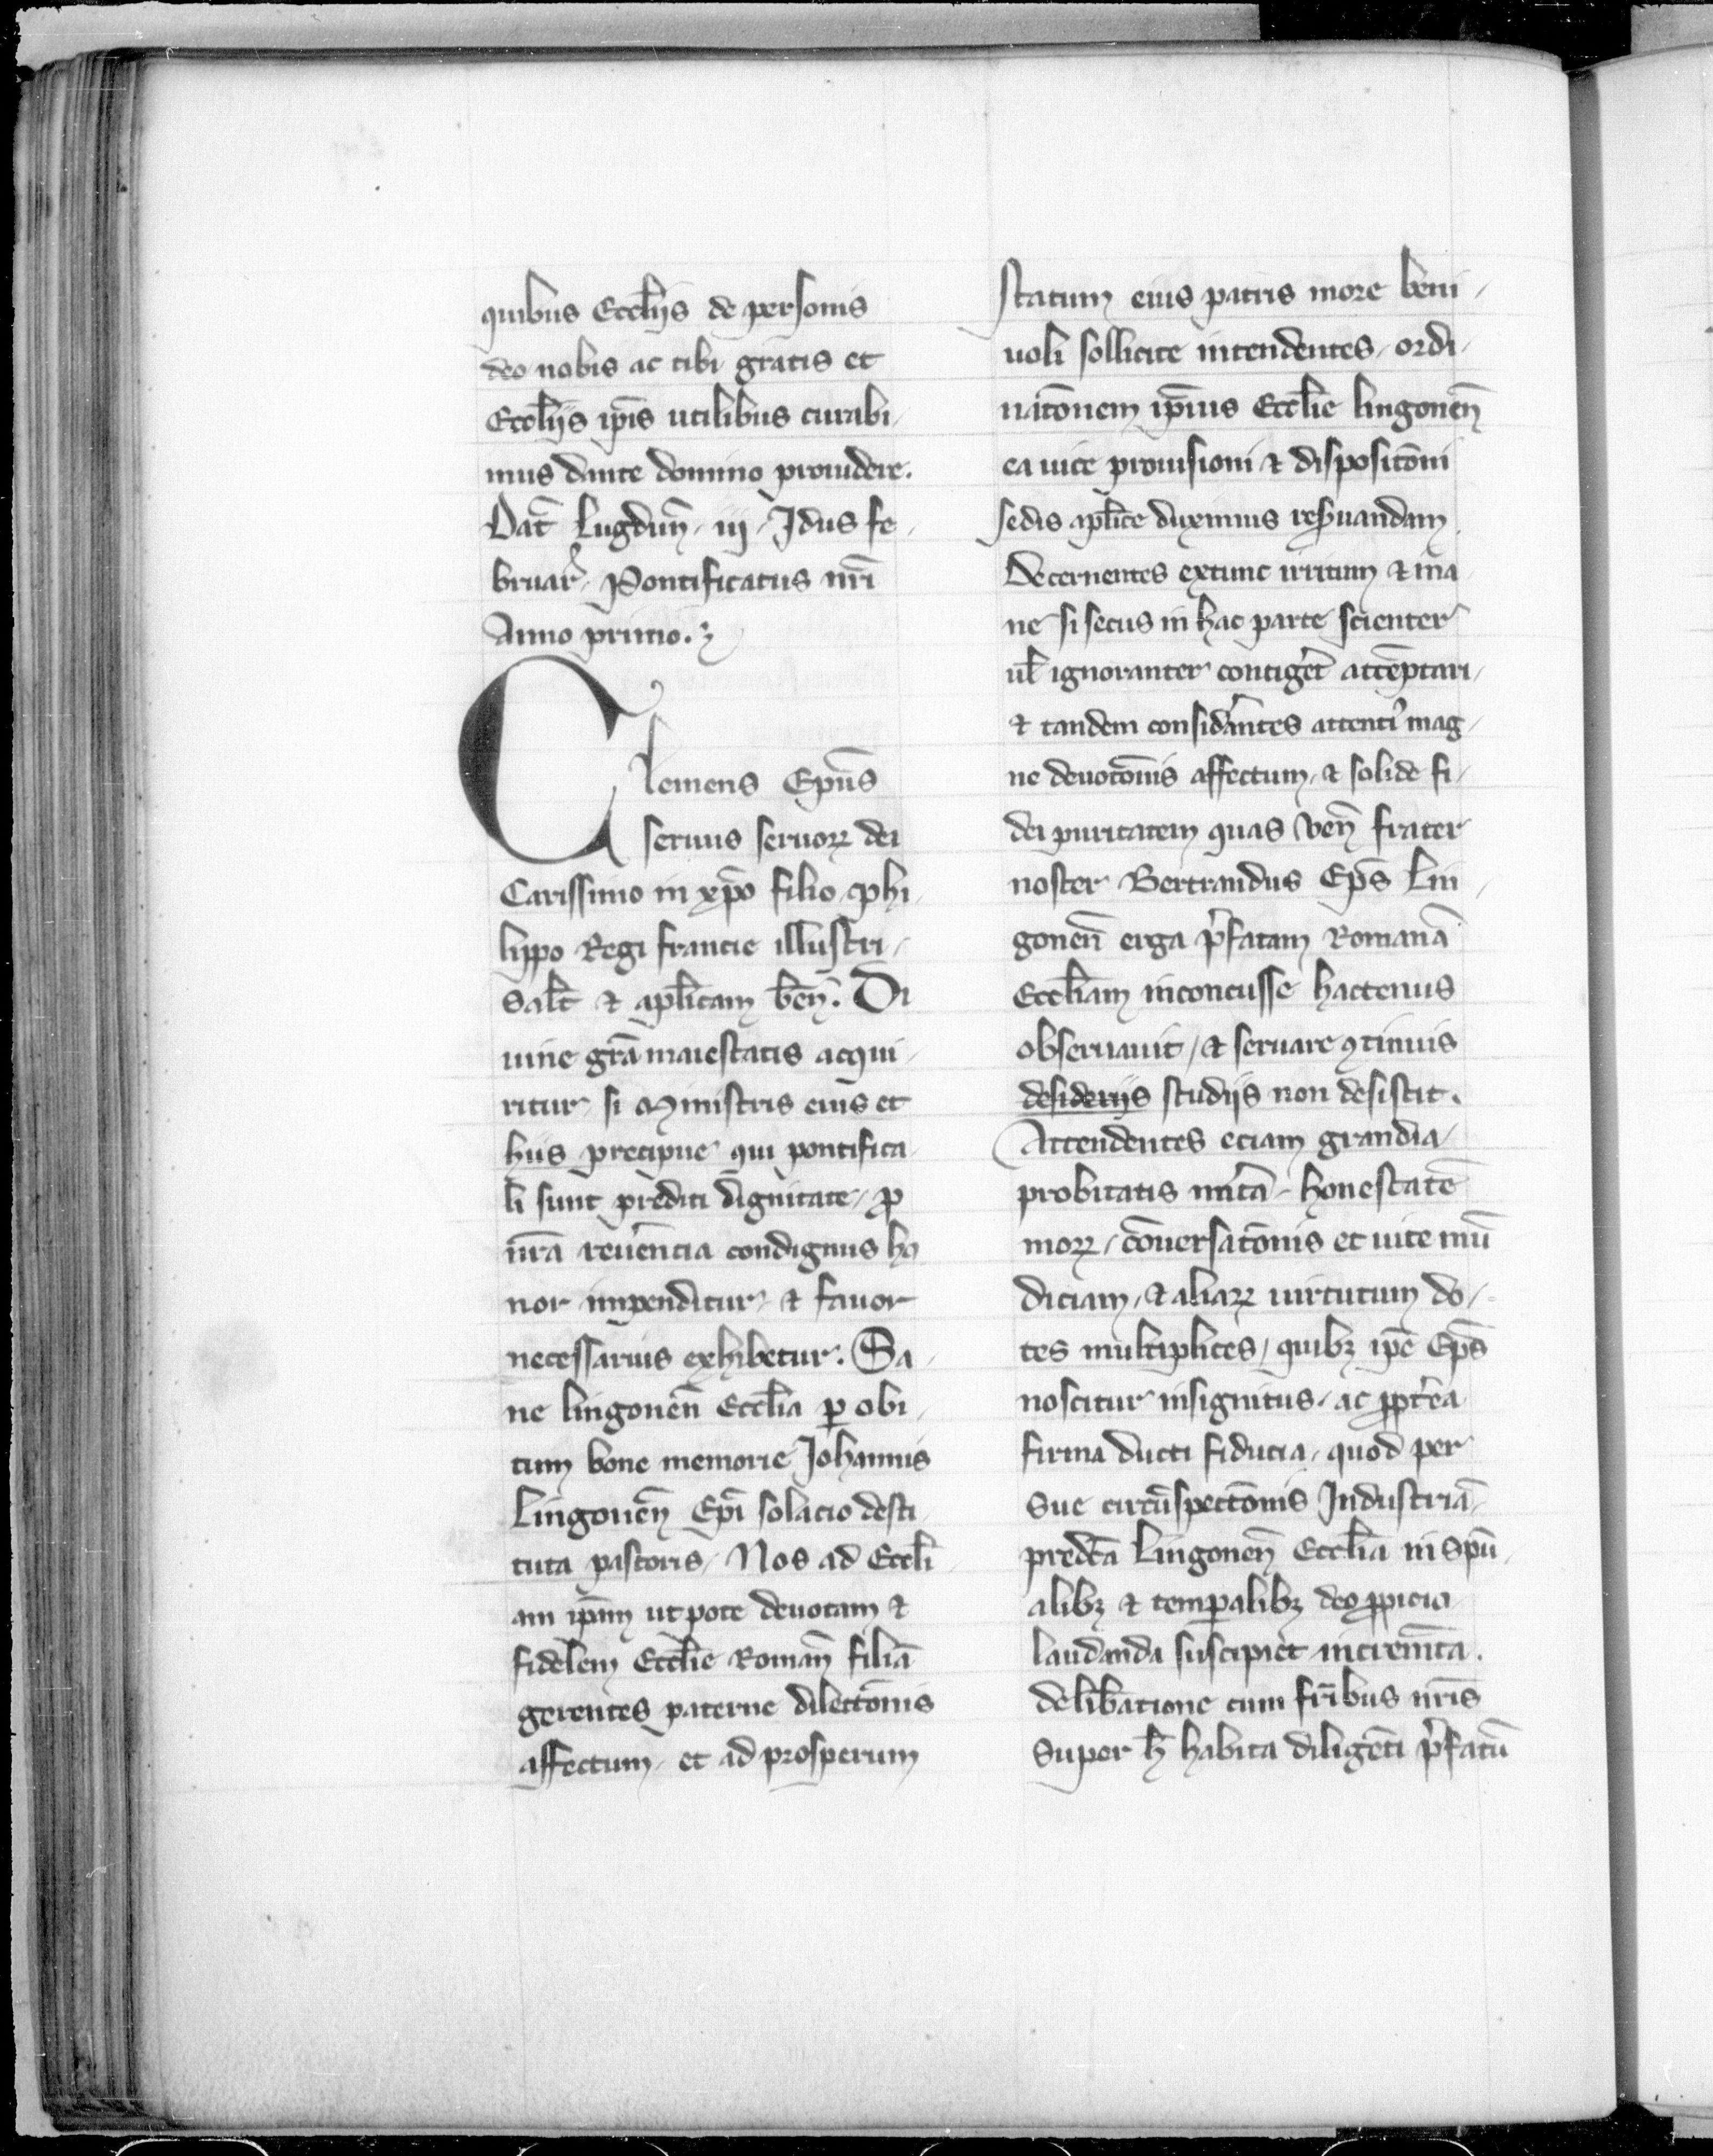 quibus Eccl̄ijs de personis
deo nobis ac tibi gratis et
Eccl̄ijs ip̄is utilibus curabi
mus dante domino prouidere.
Dat̄ Lugdun̄ iij Idus fe
bruar̄ Pontificatus nr̄i
Anno primo.
Clemens Ep̄us
seruus seruoꝝ dei
Carissimo in xp̄o filio phi
lippo Regi francie illustri
Sal̄t ⁊ apl̄icam ben̄. Di
uine gr̄a maiestatis acqui
ritur si Ministris eius et
hiis precipue qui pontifica
li sunt prediti dignitate, ꝓ
nr̄a reuerēncia condignus ho
nor impenditur ⁊ fauor
necessarius exhibetur. Sa
ne lingonen̄ Eccl̄ia ꝑ obi
tum bone memorie Johannis
Lingonen̄ Ep̄i solacio desti
tuta pastoris, Nos ad Eccl̄i
am ip̄am utpote deuotam ⁊
fidelem Eccl̄ie Roman̄ filiā
gerentes paterne dilectōnis
affectum, et ad prosperum
statum eius patris more beni
uoli sollicite intendentes, ordi
natōnem ip̄ius Eccl̄ie lingonen̄
ea uice prouisioni ⁊ dispositōni
sedis apl̄ice duximus res̄uandam
Decernentes extunc irritum ⁊ ina
ne si secus in hac parte scienter
ul̄ ignoranter contiget̄ attēptari,
⁊ tandem consid̄antes attenti᷒ mag
ne deuotōnis affectum, ⁊ solide fi
dei puritatem quas Ven̄ frater
noster Bertrandus Ep̄s Lin
gonen̄ erga p̄fatam Romanā
Eccl̄iam inconcusse hactenus
obseruauit, ⁊ seruare ꝯtinuis
desiderijs studijs non desistit.
Attendentes eciam grandia
probitatis mīta, honestatē
moꝝ, cōuersatōnis et uite mū
diciam, ⁊ aliaꝝ uirtutum do
tes multiplices, quibꝫ ip̄e Ep̄s
noscitur insignitus, ac ꝓpt̄ea
firma ducti fiducia, quod per
Sue circūspectōnis Industriā
predc̄a Lingonen̄ Eccl̄ia in Spū
alibꝫ ⁊ temꝑalibꝫ deo ꝓpicio
laudanda suscipiet incremīta.
delib̄atione cum fr̄ibus nr̄is
Super h̄ habita diligēti p̄fatū